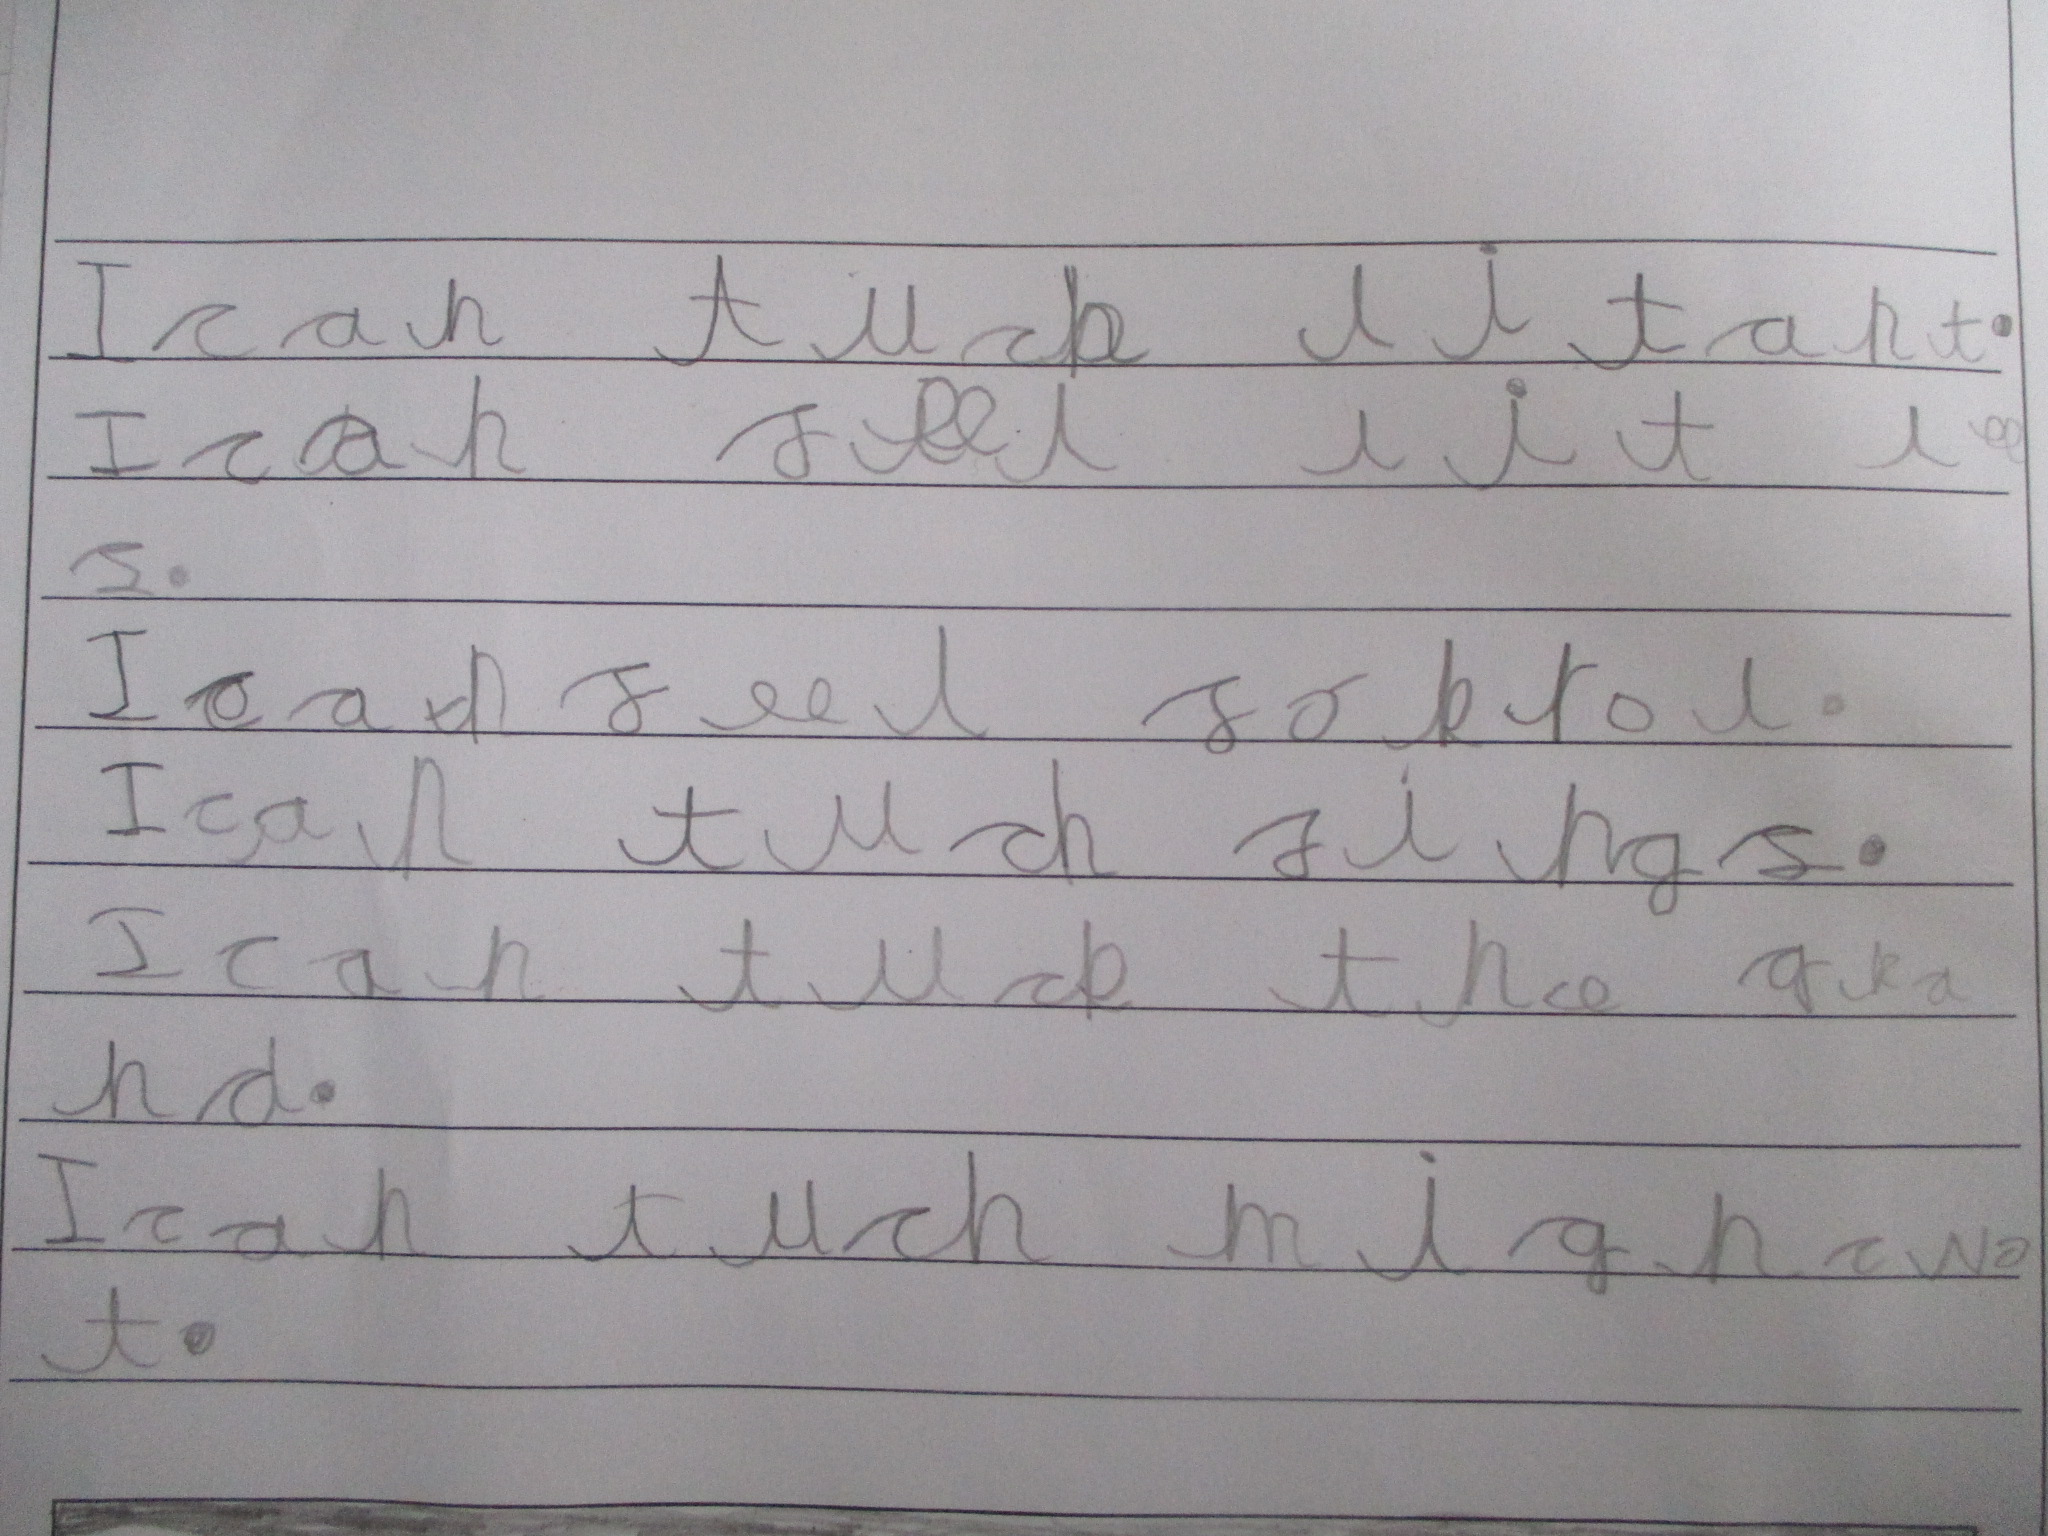 I can tuch litant.
I can feel lit lee
s.
I can feel forkrol.
I can tuch fings.
I can tuch the gra
nd.
I can tuch mighcwo
t.